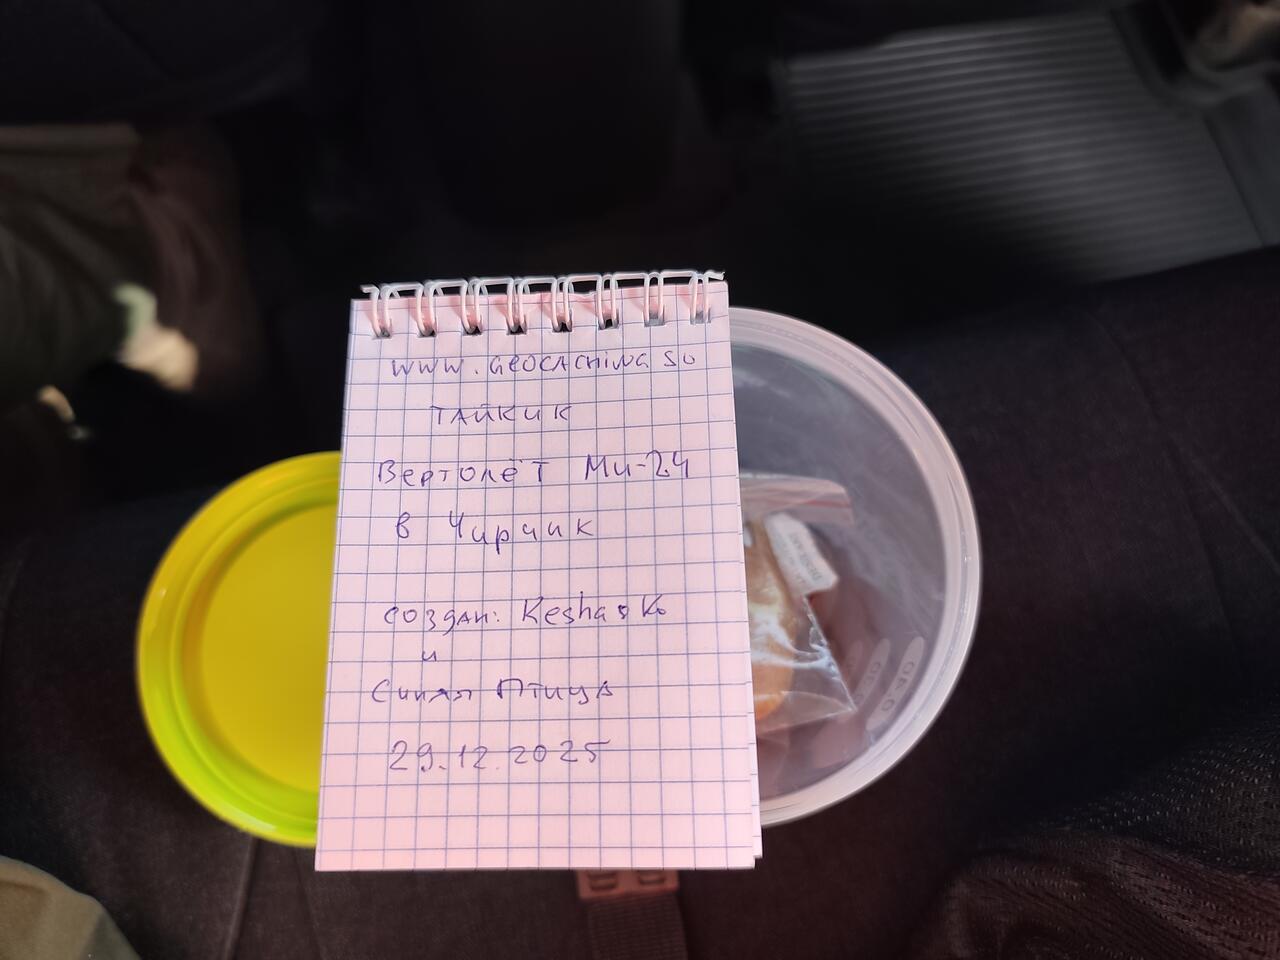 www.geocaching su
ТАЙНИК
Вертолёт Ми-24
в Чирчик
создан:
и
Синяя Птица
29.12.2025